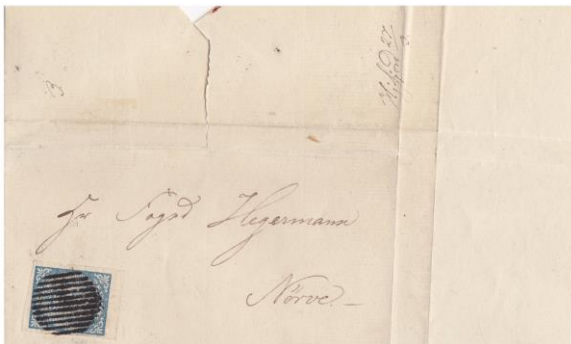 Hr Foged Hegermann
Nörve.